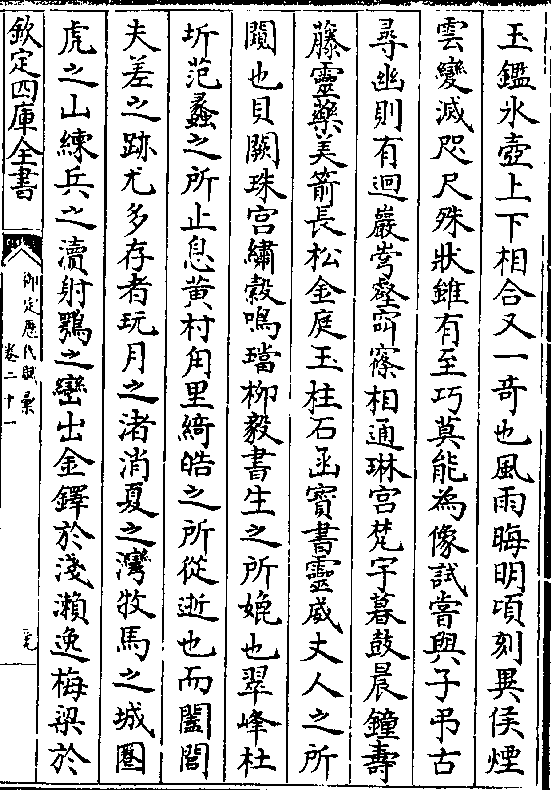 玉鑑氷壺上下相合又一奇也風雨晦明頃刻異侯煙
雲變滅咫尺殊狀雖有至巧莫能為像試嘗與子弔古
尋幽則有迴巖嵌壑窅窱相通琳宮梵宇暮鼓晨鐘壽
藤靈藥美箭長松金庭玉柱石函寳書靈威丈人之所
閲也貝闕珠宮繡縠鳴璫柳毅書生之所娩也翠峰杜
圻范蠡之所止息黄村角里綺皓之所從逝也而闔閭
夫差之跡尤多存者玩月之渚消夏之灣牧馬之城圏
虎之山練兵之瀆射鶚之巒出金鐸於淺瀨逸梅梁於
欽定四庫全書
御定歴代賦彙
卷二十一